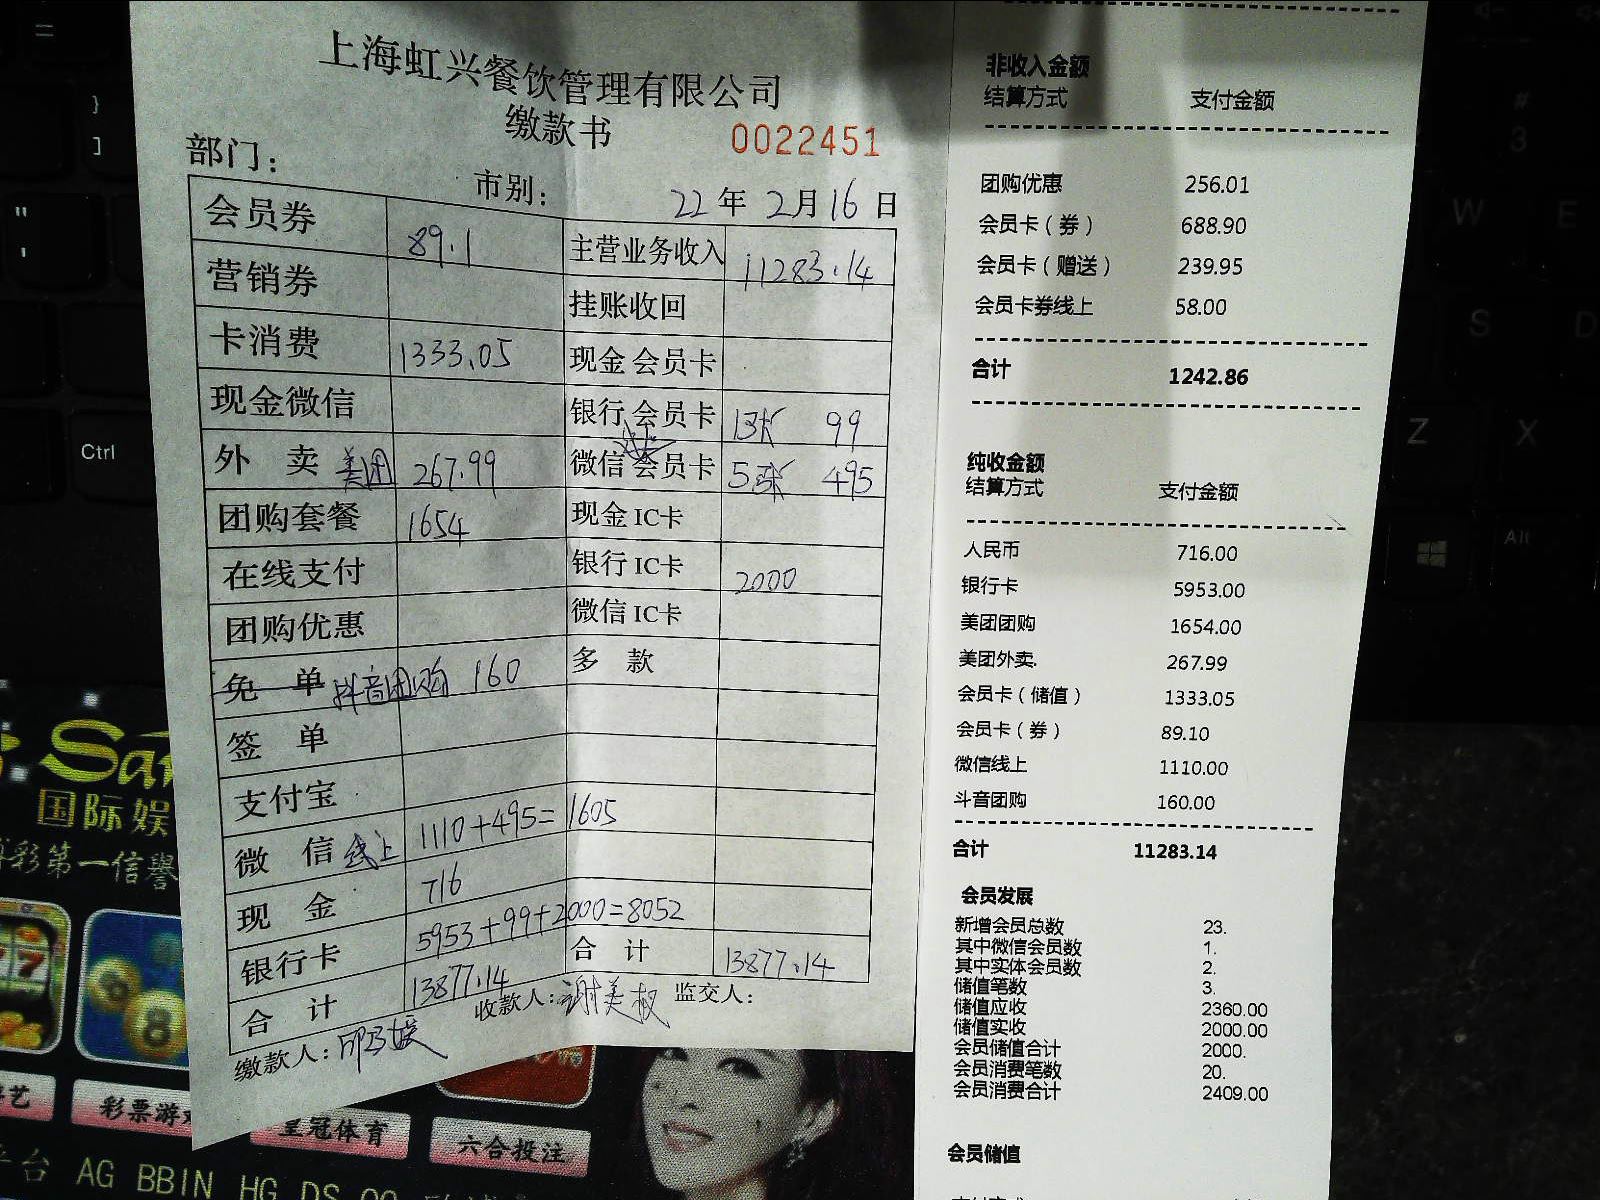 上海虹兴餐饮管理有限公司
缴款书
0022451
部门:
市别:
22年 2月16日
会员券 89.1 主营业务收入 11283.14
营销券 挂账收回
卡消费 1333.05 现金 会员卡
现金微信 银行 会员卡 1张 99
外 卖 美团 267.99 微信 会员卡 5张 495
团购套餐 1654 现金 IC卡
在线支付 银行 IC卡 2000
团购优惠 微信 IC卡
免 单 抖音团购 160 多 款
签 单
支付宝
微 信 线上 1110+495=1605
现 金 716
银行卡 5953+99+2000=8052
合 计 13877.14 合 计 13877.14
缴款人: 收款人: 谢美 监交人:
非收入金额
结算方式 支付金额
团购优惠 256.01
会员卡（券） 688.90
会员卡（赠送） 239.95
会员卡券线上 58.00
合计 1242.86
纯收金额
结算方式 支付金额
人民币 716.00
银行卡 5953.00
美团团购 1654.00
美团外卖. 267.99
会员卡（储值） 1333.05
会员卡（券） 89.10
微信线上 1110.00
斗音团购 160.00
合计 11283.14
会员发展
新增会员总数 23.
其中微信会员数 1.
其中实体会员数 2.
储值笔数 3.
储值应收 2360.00
储值实收 2000.00
会员储值合计 2000.
会员消费笔数 20.
会员消费合计 2409.00
会员储值
Ctrl
Alt
#
3
W
E
S
D
Z
X
国际娱
彩第一信譽
彩票游
皇冠体育
六合投注
台 AG BBIN HG DS